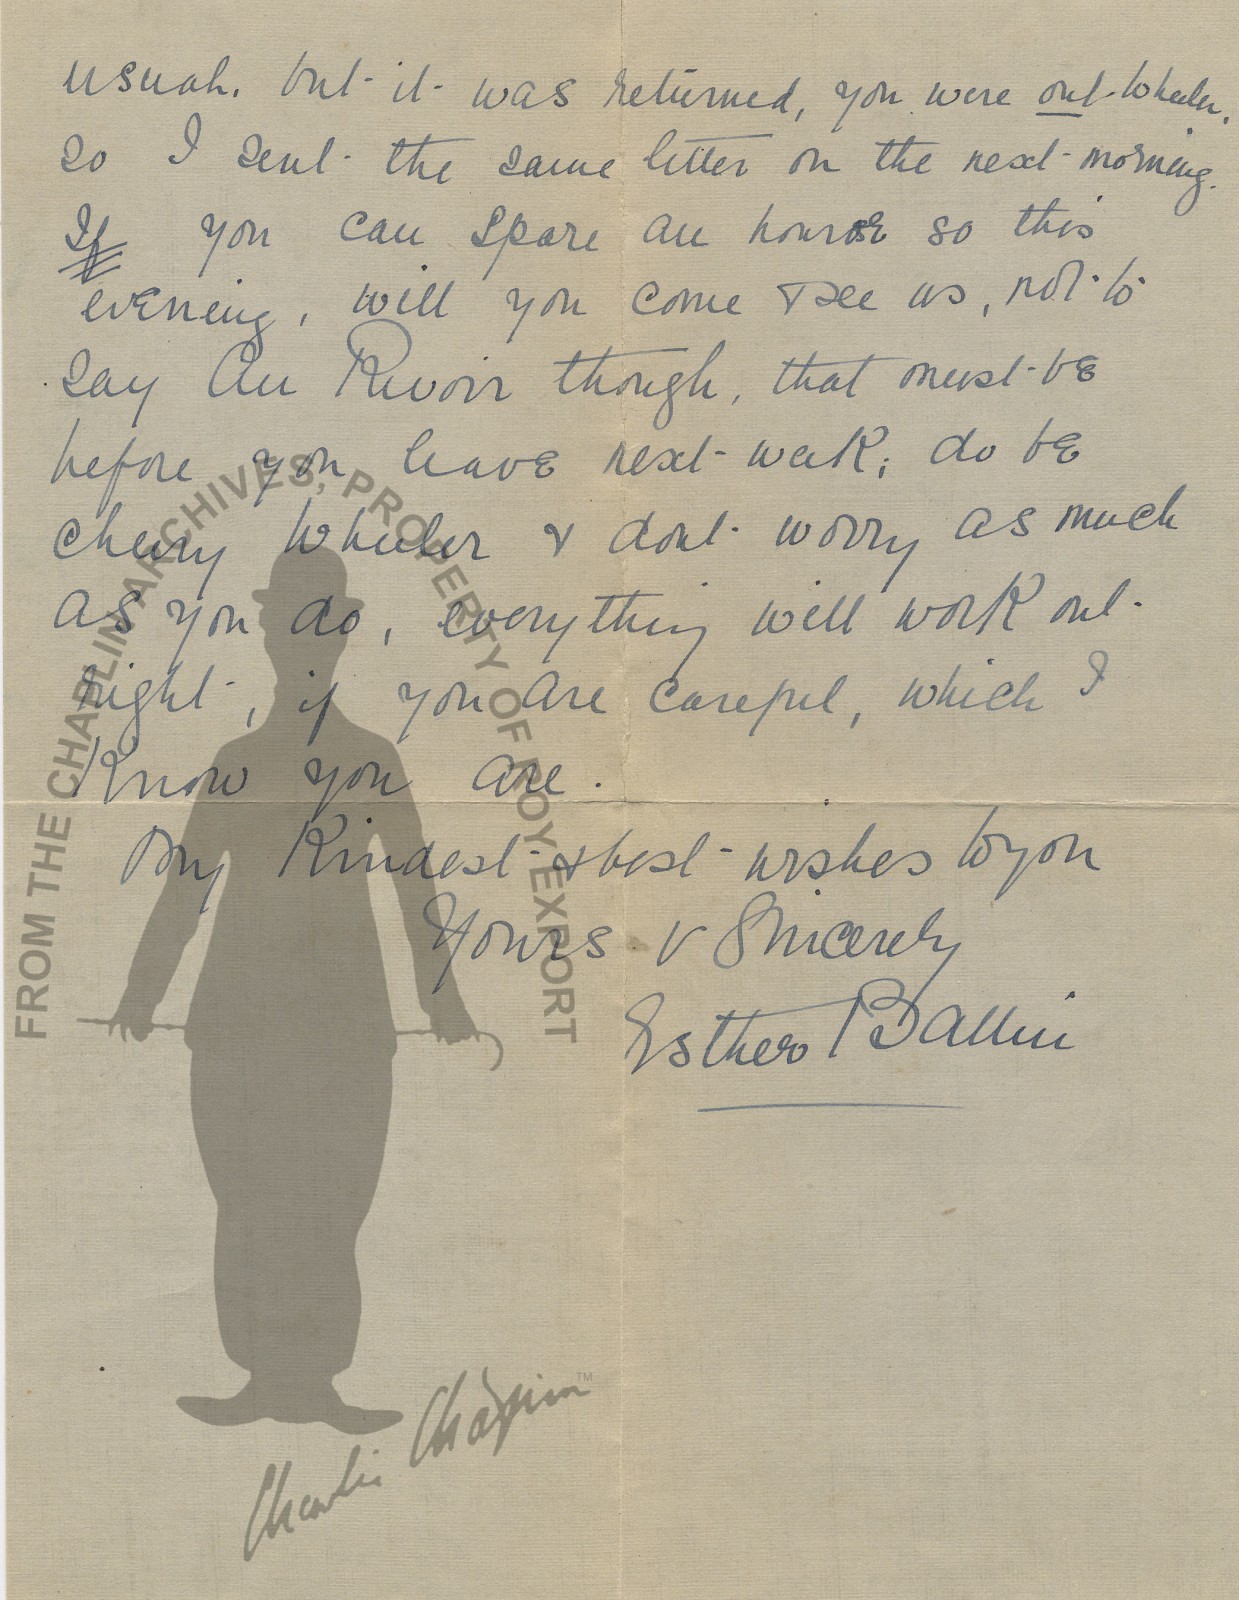 usual. but it was returned, you were out Wheeler.
so I sent the same letter on the next morning.
If you can spare an hour or so this
evening, will you come & see us, not to
say Au Revoir though, that must be
before you leave next week; do be
cheery Wheeler & dont worry as much
as you do, everything will work out
right, if you are careful, which I
know you are.
My Kindest & best wishes to you
Yours v Sincerely
Esther Ballin
FROM THE CHAPLIN ARCHIVES, PROPERTY OF ROY EXPORT
Charlie Chaplin™